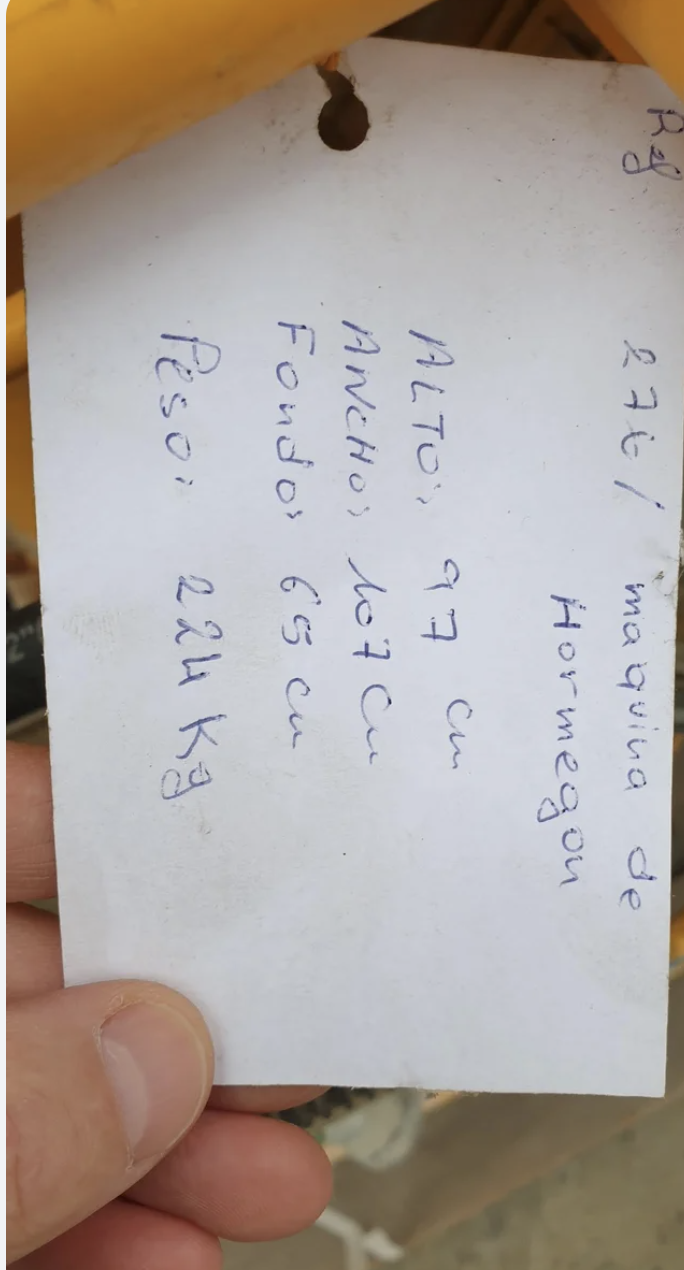 Rf 276/ maquina de
Hormegon
ALTO: 97 cm
ANCHO: 107 cm
Fondo: 65 cm
Peso: 224 Kg